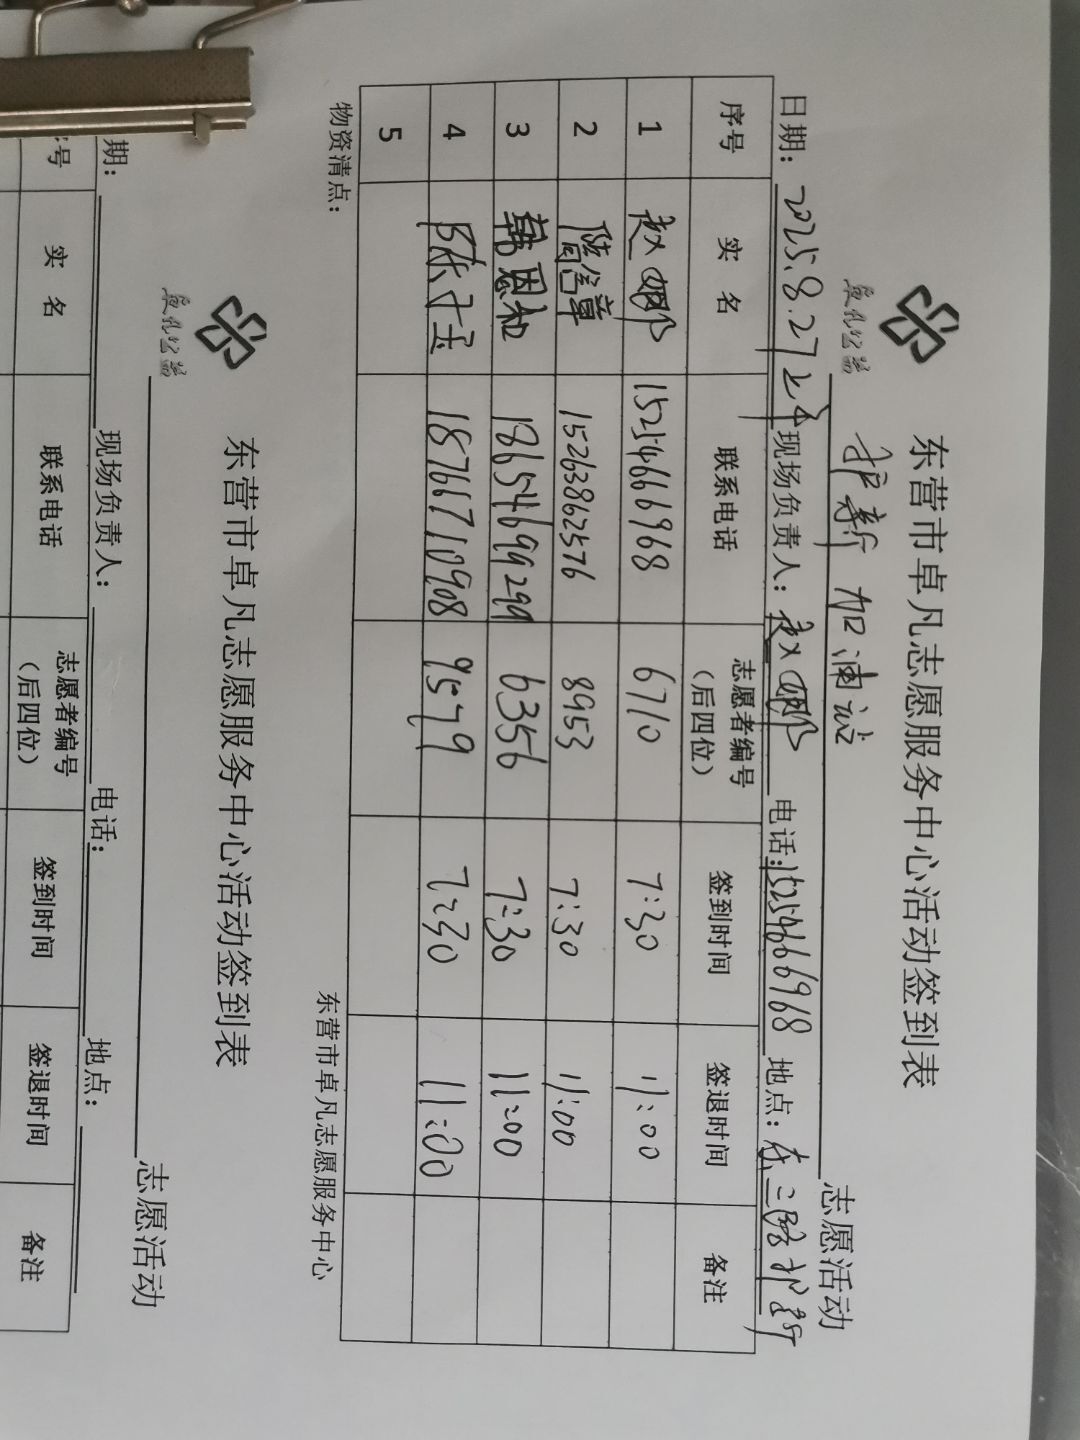 卓凡公益
东营市卓凡志愿服务中心活动签到表
护寿行 加油站 志愿活动
日期：2025.8.27上午 现场负责人：赵娜 电话：15254666968 地点：东二路护
序号 实 名 联系电话 志愿者编号（后四位） 签到时间 签退时间 备注
1 赵娜 15254666968 6710 7:30 11:00
2 15263862576 8953 7:30 11:00
3 韩恩和 18654699299 6356 7:30 11:00
4 陈才玉 18766710908 9579 7:30 11:00
5
物资清点： 东营市卓凡志愿服务中心
卓凡公益
东营市卓凡志愿服务中心活动签到表
志愿活动
期： 现场负责人： 电话： 地点：
号 实 名 联系电话 志愿者编号（后四位） 签到时间 签退时间 备注